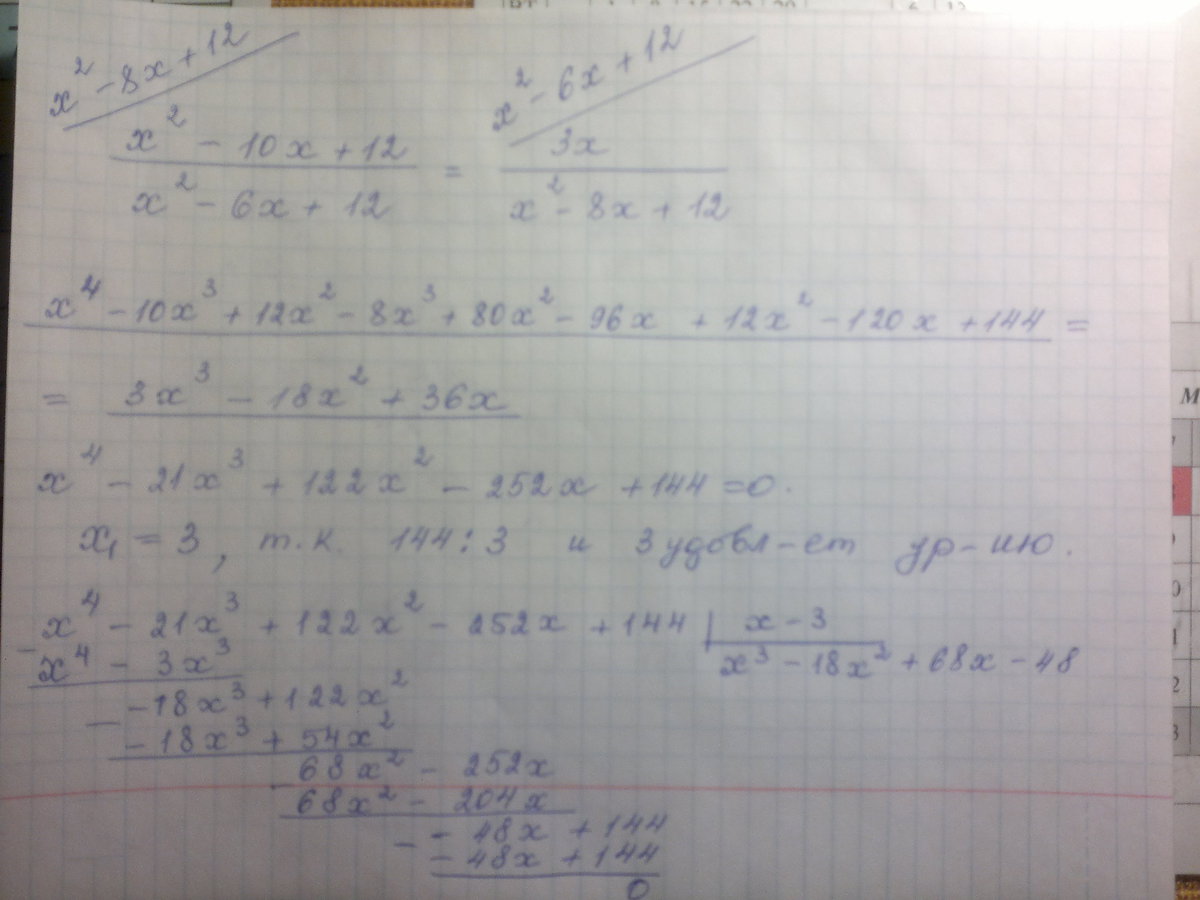 x² - 8x + 12
x² - 6x + 12
x² - 10x + 12 = 3x
x² - 6x + 12 x² - 8x + 12
x⁴ - 10x³ + 12x² - 8x³ + 80x² - 96x + 12x² - 120x + 144 =
= 3x³ - 18x² + 36x
x⁴ - 21x³ + 122x² - 252x + 144 = 0.
x₁ = 3, т.к. 144 : 3 и 3 удовл-ет ур-ию.
x⁴ - 21x³ + 122x² - 252x + 144 | x - 3
- x⁴ - 3x³ x³ - 18x² + 68x - 48
-18x³ + 122x²
- -18x³ + 54x²
68x² - 252x
- 68x² - 204x
-48x + 144
- -48x + 144
0
М